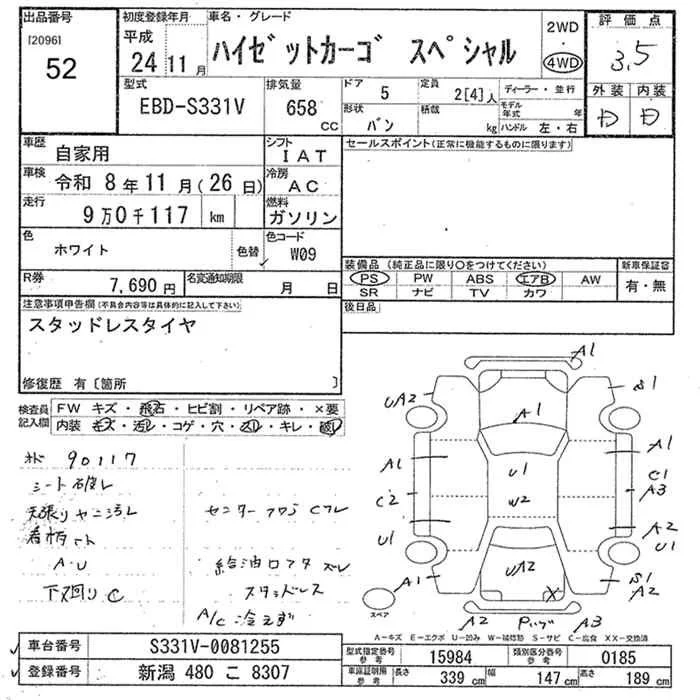 出品番号
[2096]
52
初度登録年月
平成
24 11月
車名・グレード
ハイゼットカーゴ スペシャル
2WD
・
4WD
評価点
3.5
外装 内装
D D
型式
EBD-S331V
排気量
658
CC
ドア
5
定員
2[4]人
ディーラー・並行
形状
バン
積載
kg
モデル年式 年
ハンドル 左・右
車歴
自家用
シフト
IAT
セールスポイント(正常に機能するものに限ります)
車検
令和 8年11月(26日)
冷房
AC
走行
9万0千117 km
燃料
ガソリン
色
ホワイト
色替
色コード
W09
装備品 (純正品に限り○をつけてください)
新車保証書
PS PW ABS エアB AW
SR ナビ TV カワ
有・無
R券
7,690円
名変通知期限
月 日
後日品
注意事項申告欄(不具合内容等は具体的に記入して下さい)
スタッドレスタイヤ
修復歴 有〔箇所 〕
検査員記入欄
FW キズ・飛石・ヒビ割・リペア跡・×要
内装 キズ・汚レ・コゲ・穴・スレ・キレ・破レ
90117
シート破レ
天張りヤニ汚レ
看板アト
A・U
下廻りC
センターフロアCフレ
給油口フタズレ
スタッドレス
A/C冷えず
A1
UA2
S1
A1
A1
U1
A1
C1
C2
W2
A3
U1
A2
U1
UA2
A1
S1
A2
X
スペア
A2
A3
A-キズ E-エクボ U-凹み W-補修愁 S-サビ C-腐食 XX-交換済
車台番号
S331V-0081255
型式指定番号
参考
15984
類別区分番号
参考
0185
登録番号
新潟 480 こ 8307
車庫証明用
参考
長さ
339 cm
幅
147 cm
高さ
189 cm